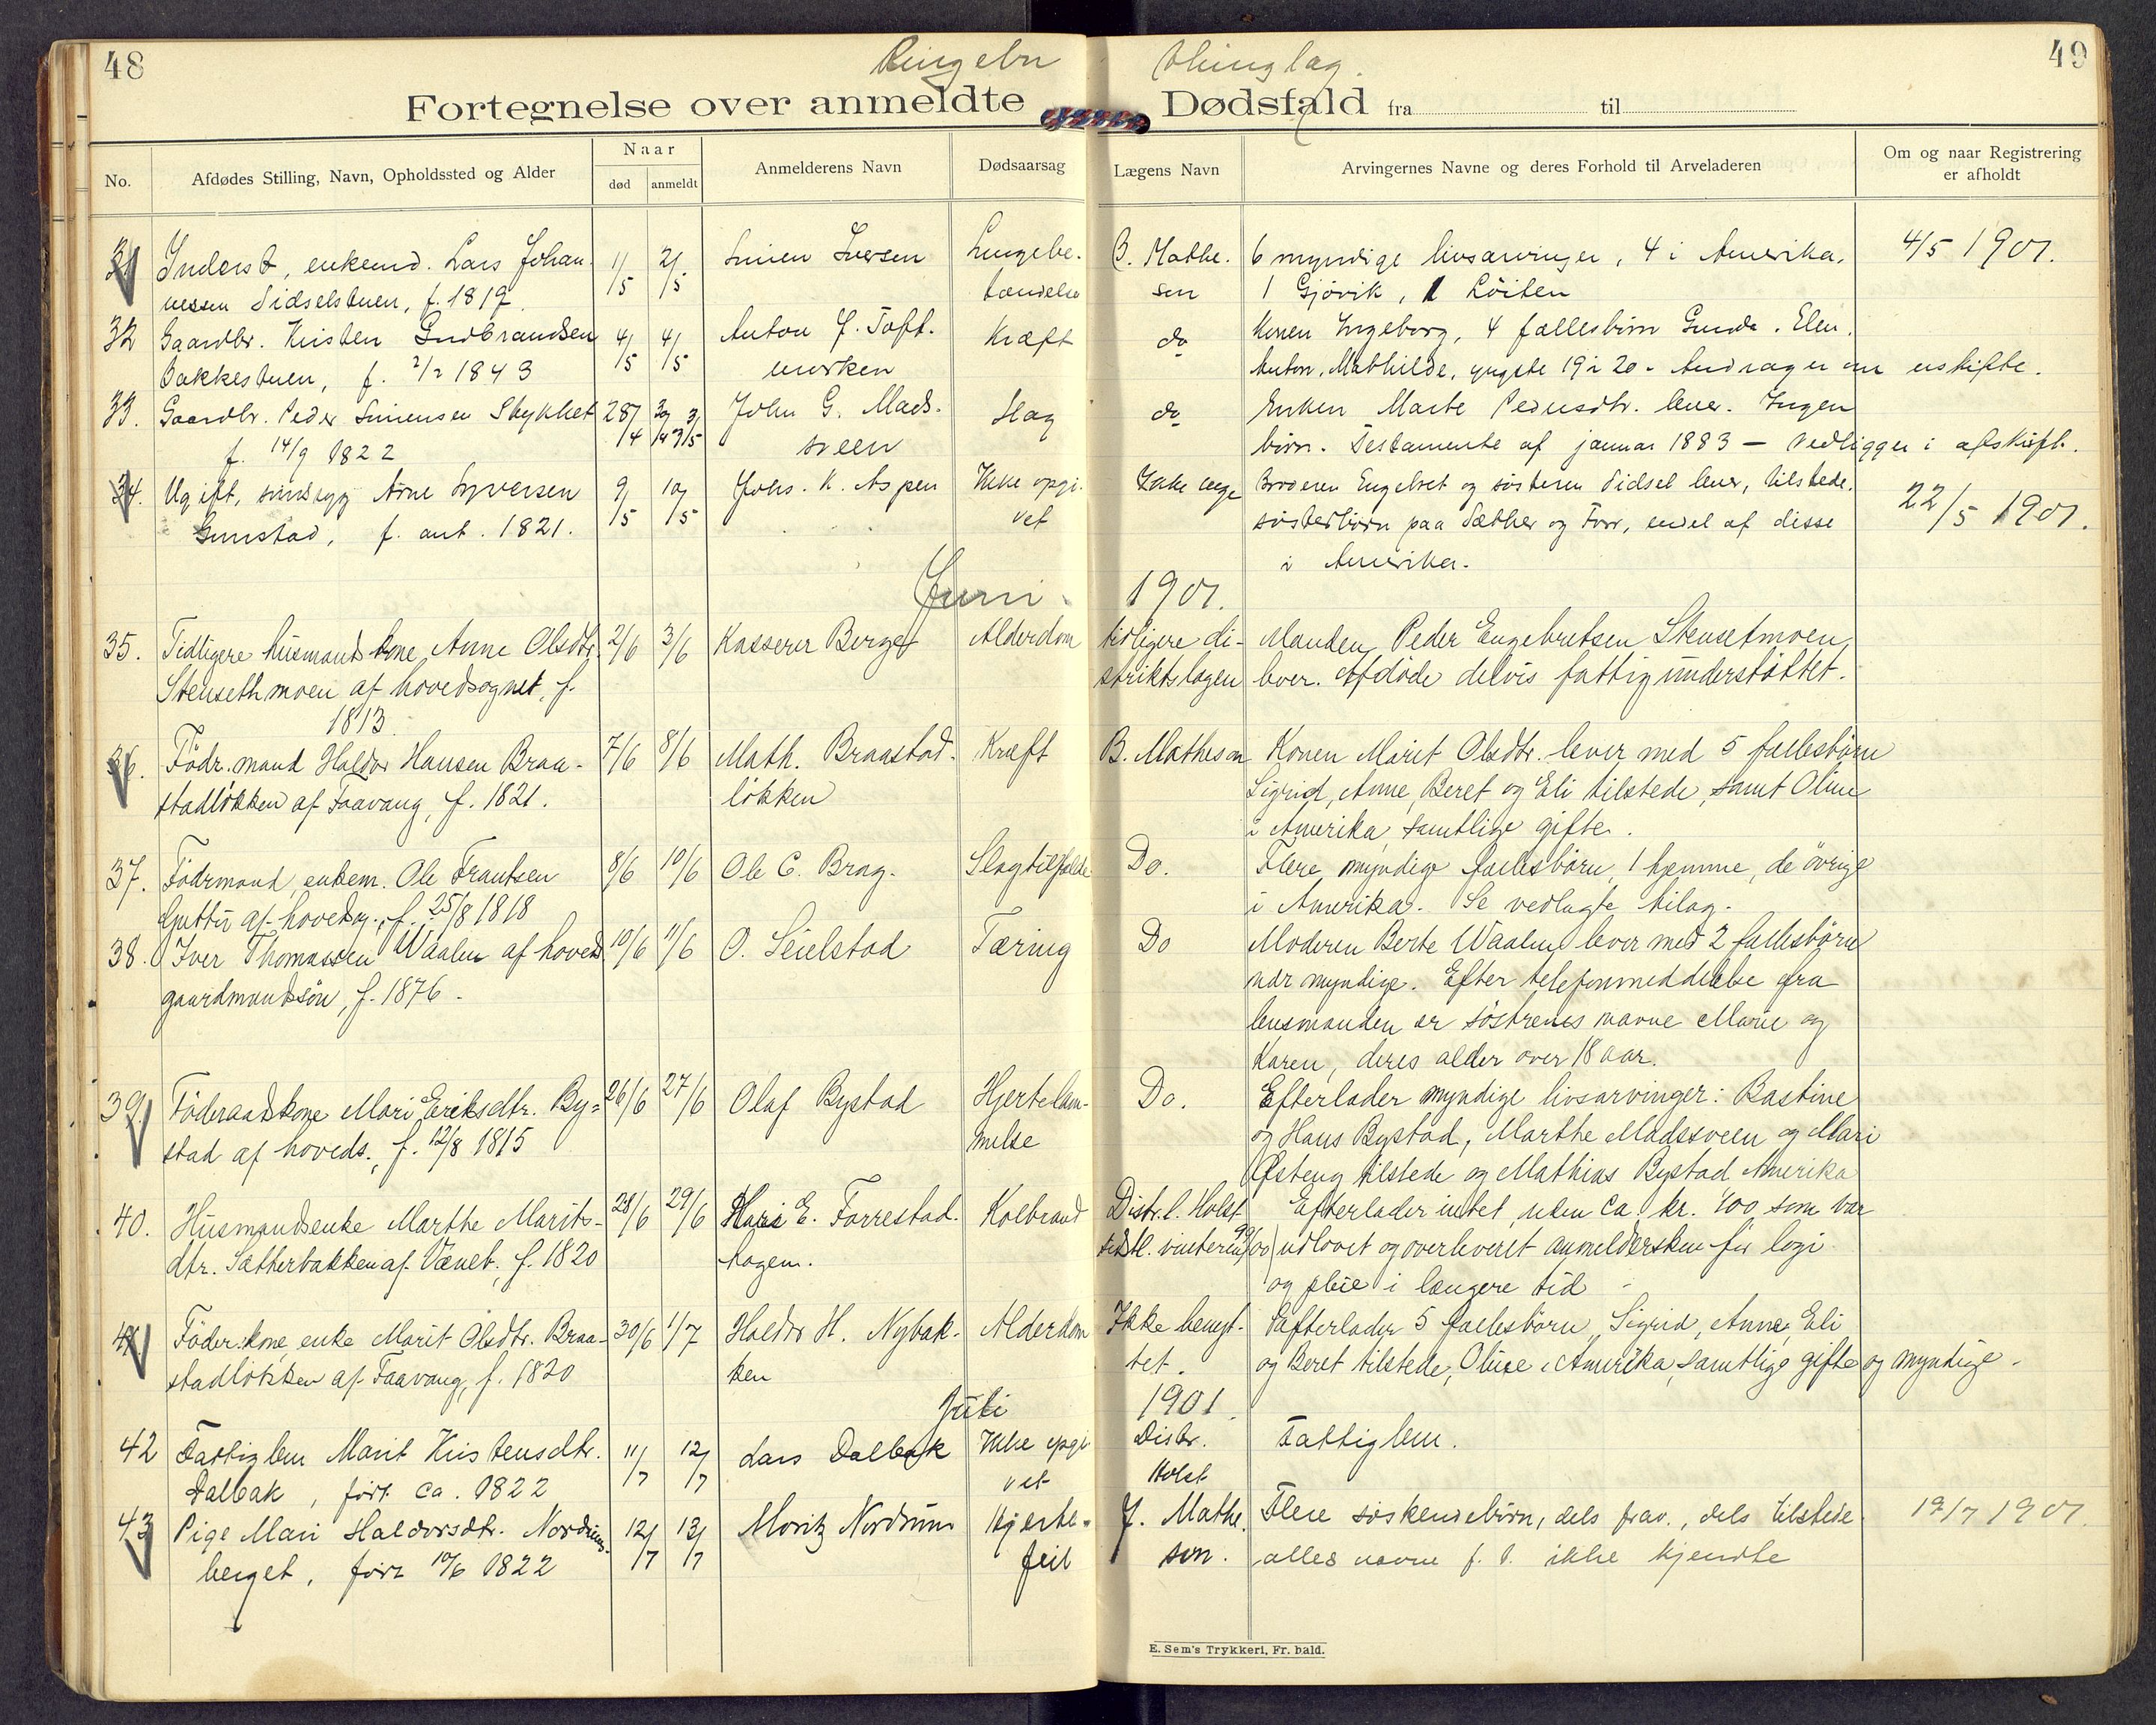 48
Ringebu
thinglag.
49
Fortegnelse over anmeldte Dødsfald fra til
No.
Afdødes Stilling, Navn, Opholdssted og Alder
Naar
død
anmeldt
Anmelderens Navn
Dødsaarsag
Lægens Navn
Arvingernes Navne og deres Forhold til Arveladeren
Om og naar Registrering
er afholdt
31 Inderst, enkemd. Lars Johan- 1/5 2/5 Simen Iversen Lungebe- B. Mathe- 6 myndige livsarvinger, 4 i Amerika, 4/5 1901.
nessen Sidselstuen, f. 1819. tændelse sen 1 Gjövik, 1 Löiten
32 Gaardbr. Kristen Gudbrandsen 4/5 4/5 Anton J. Toft- Kræft do Konen Ingeborg, 4 fællesbörn Gunda, Elen,
Bakkestuen, f. 2/2 1843 marken Anton, Mathilde, yngste 19 i 20 - Andrager om uskifte.
33. Gaardbr. Peder Simensen Stykket 28/4 John G. Mads- Slag do Enken Marte Pedersdtr. lever. Ingen
f. 14/9 1822 sveen börn. Testamente af januar 1883 - vedligger i afskrift.
34. Ugift, sindssyg Arne Syversen 9/5 10/5 Johs. K. Aspen Ikke opgi- Ikke læge Broderen Engebret og søsteren Sidsel lever, tilstede, 22/5 1901.
Gunstad, f. ant. 1821. vet søsterbörn paa Sæther og Forr, endel af disse
i Amerika.
Juni 1901.
35. Tidligere husmandskone Anne Olsdtr. 2/6 3/6 Kasserer Berget Alderdom tidligere di- Manden Peder Engebretsen Stensetmoen
Stensethmoen af hovedsognet, f. striktslægen lever. Afdöde delvis fattigunderstöttet.
1813.
36. Födr.mand Haldor Hansen Braa- 7/6 8/6 Math. Braastad- Kræft B. Matheson Konen Marit Olsdtr. lever med 5 fællesbörn
stadlökken af Faavang, f. 1821. lökken Sigrid, Anne, Beret og Eli tilstede, samt Oline
i Amerika, samtlige gifte.
37. Födrmand, enkem. Ole Frantsen 8/6 10/6 Ole C. Brag. Slagtilfælde Do. Flere myndige fællesbörn, 1 hjemme, de övrige
af hovedsg., f. 25/8 1818 i Amerika. Se vedlagte bilag.
38. Iver Thomassen Waalen af hoveds 10/6 11/6 O. Seielstad Tæring Do Moderen Berte Waalen lever med 2 fællesbörn
gaardmandssön, f. 1876. nær myndige. Efter telefonmeddelelse fra
lensmanden er söstrenes navne Marie og
Karen, deres alder over 18 aar.
39. Föderaadskone Mari Eriksdtr. By= 26/6 27/6 Olaf Bystad Hjertelam- Do. Efterlader myndige livsarvinger: Bastine
stad af hoveds., f. 12/8 1815 melse og Hans Bystad, Marthe Madssveen og Mari
Østeng tilstede og Mathias Bystad Amerika
40. Husmandsenke Marthe Marits- 28/6 29/6 E. Forrestad- Kolbrand Distr.l. Holst Efterlader intet, uden ca. kr. 400 som var
dtr. Sætherbakken af Væneb. f. 1820 hagen. tidl. vinteren 99/00 udlovet og overleveret anmeldersken for logi
og pleie i længere tid -
41. Föder.kone, enke Marit Olsdtr. Braa- 30/6 1/7 Haldor H. Nybak- Alderdom Ikke benyt- Efterlader 5 fællesbörn, Sigrid, Anne, Eli
stadlökken af Faavang, f. 1820 ken tet. og Beret tilstede, Oline i Amerika, samtlige gifte og myndige.
Juli 1901.
42 Fattiglem Marit Kristensdtr. 11/7 12/7 Lars Dalbak Ikke opgi- Distr. Fattiglem.
Dalbak, født ca. 1822 vet Holst
43 Pige Mari Haldorsdtr. Nordrums- 12/7 13/7 Moritz Nordrum Hjerte- J. Mathe- Flere söskendebörn, dels frav., dels tilstede 19/7 1901.
berget, født 10/6 1822 feil son. alles navne f. t. ikke kjendte
E. Sem's Trykkeri, Fr. hald.